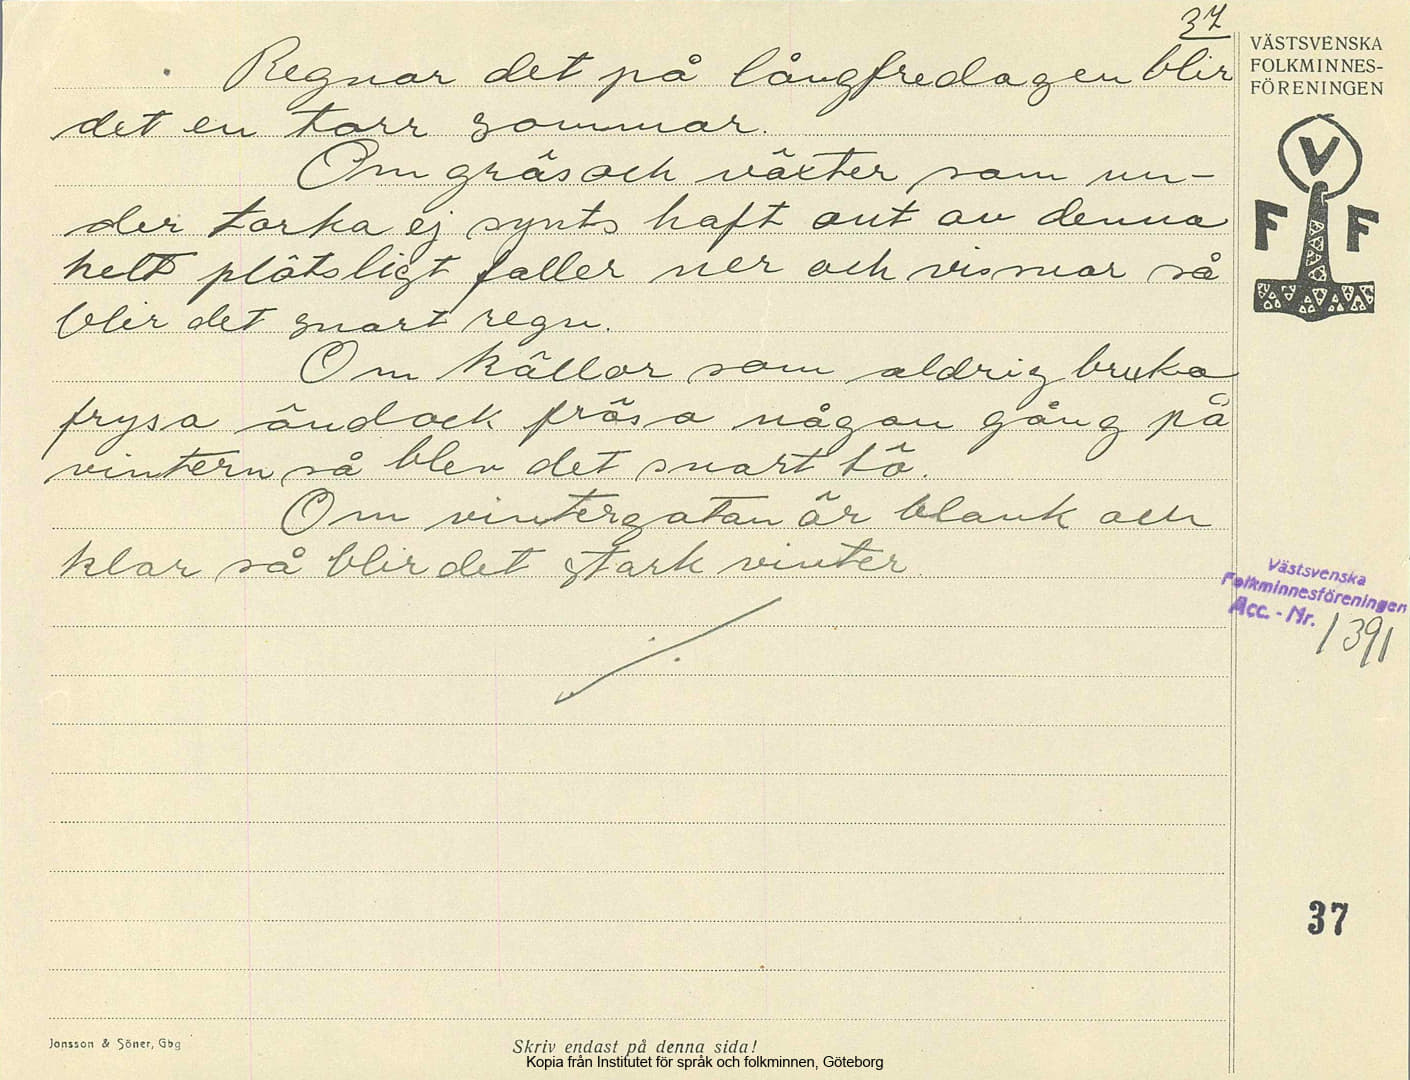 37
Regnar det på långfredagen blir
det en torr sommar.
Om gräs och växter som un-
der torka ej synts haft ont av denna
helt plötsligt faller ner och vissnar så
blir det snart regn.
Om källor som aldrig bruka
frysa ändock frösa någon gång på
vintern så blev det snart tö.
Om vintergatan är blank och
klar så blir det stark vinter
VÄSTSVENSKA
FOLKMINNES-
FÖRENINGEN
V
F F
Västsvenska
Folkminnesföreningen
Acc. - Nr. 1391
37
Jonsson & Söner, Gbg
Skriv endast på denna sida!
Kopia från Institutet för språk och folkminnen, Göteborg